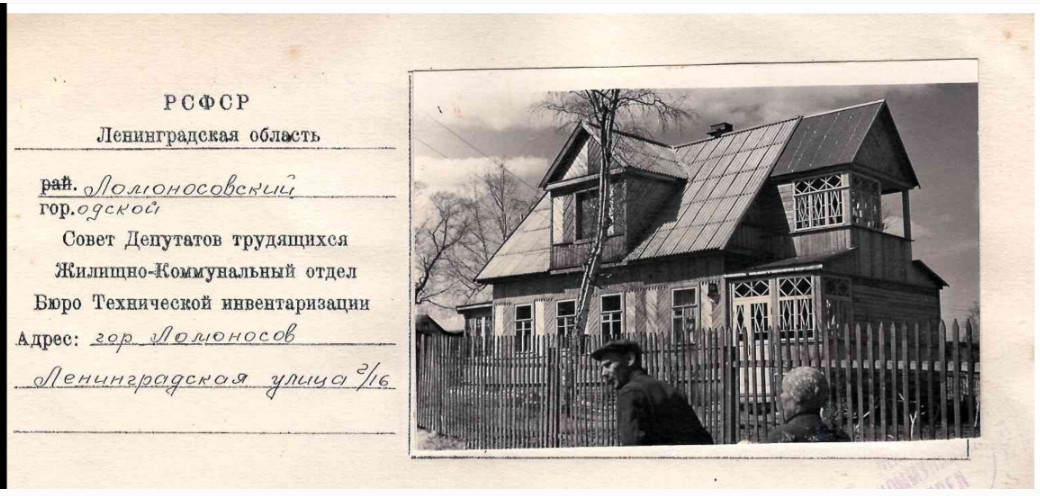 РСФСР
Ленинградская область
рай. Ломоносовский
гор.одской
Совет Депутатов трудящихся
Жилищно-Коммунальный отдел
Бюро Технической инвентаризации
Адрес: гор Ломоносов
Ленинградская улица 2/16